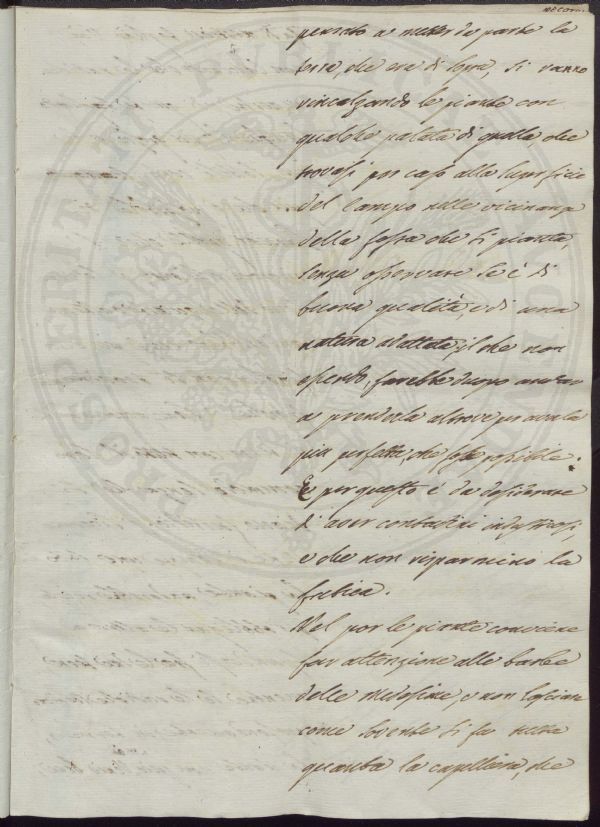 pensato a metter da parte la
terra, che era di sopra, si vanno
rincalzando le piante con
qualche palata di quella, che
trovasi per caso alla superficie
del campo nelle vicinanze
della fossa che si pianta,
senza osservare se è di
buona qualità, e di una
natura adattata, il che non
essendo, farebbe duopo andar
a prenderla altrove per averla
più perfetta, che fosse possibile.
E per questo é da desiderare
di aver contadini industriosi,
e che non risparmino la
fatica.
Nel por le piante conviene
far attenzione alle barbe
delle medesime, e non lasciare
come sovente si fa tutta
quanta la capelliera, che
PROSPERITATI PUBLICAE